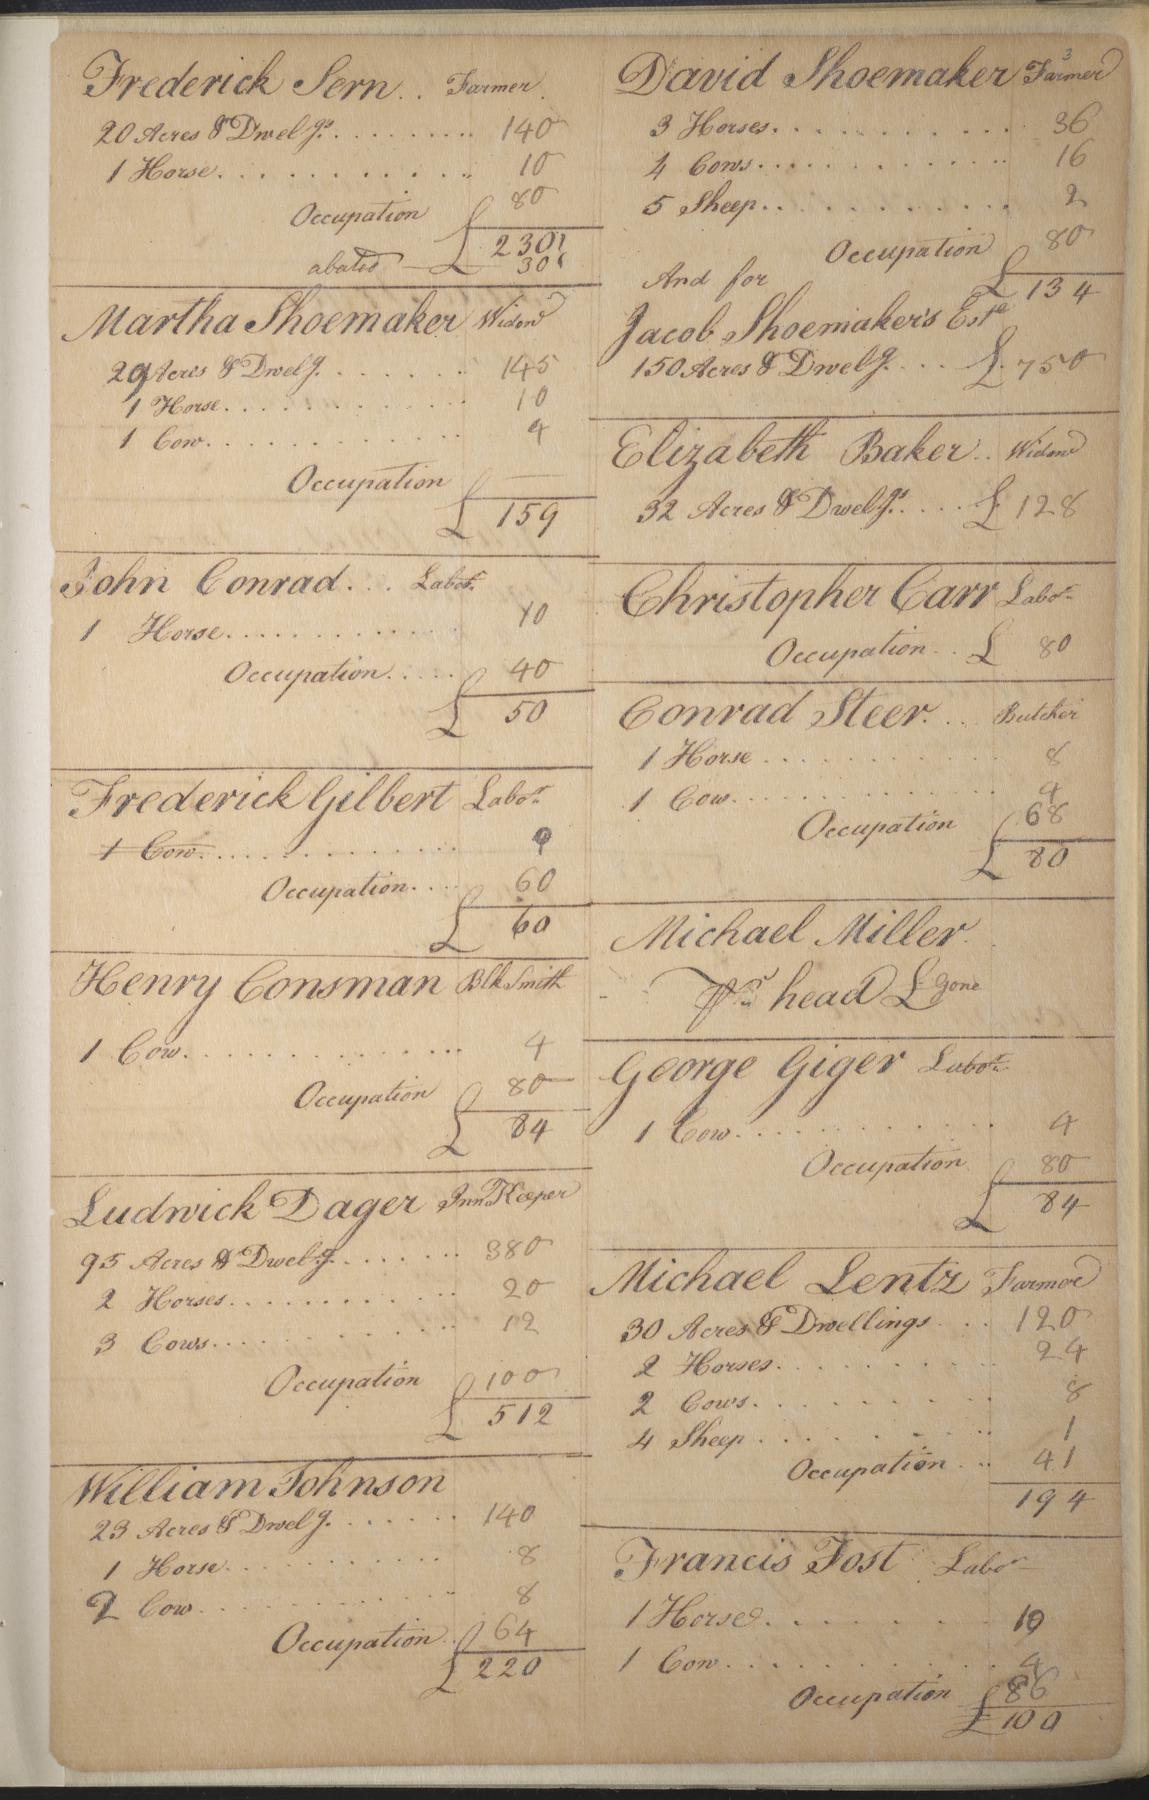 Frederick Sern.. Farmer
20 Acres & Dwelgs. ......... 140
1 Horse. ............ 10
Occupation 80
£ 230
abated 30
Martha Shoemaker Widow
29 Acres & Dwelg. ....... 145
1 Horse. ............ 10
1 Cow. ............ 4
Occupation —
£ 159
John Conrad... Labor.
1 Horse. ............ 10
Occupation. .... 40
£ 50
Frederick Gilbert Labor.
1 Cow. ............
Occupation. ... 60
£ 60
Henry Consman Blk Smith
1 Cow. ............ 4
Occupation 80
£ 84
Ludwick Dager Inn Keeper
95 Acres & Dwelg. ...... 380
2 Horses. ........... 20
3 Cows. ............ 12
Occupation 100
£ 512
William Johnson
23 Acres & Dwelg. ...... 140
1 Horse. .......... 8
2 Cow. ........... 8
Occupation. 64
£ 220
3
David Shoemaker Farmer
3 Horses. ............ 36
4 Cows. ............ 16
5 Sheep. ............ 2
Occupation 80
And for £ 134
Jacob Shoemakers Este
150 Acres & Dwelg. ... £. 750
Elizabeth Baker.. Widow
32 Acres & Dwelgs. .... £ 128
Christopher Carr Labor.
Occupation.. £ 80
Conrad Steer. .. Butcher
1 Horse .......... 8
1 Cow. ............ 4
Occupation 68
£ 80
Michael Miller.
head £ gone
George Giger Labor.
1 Cow. ............ 4
Occupation 80
£ 84
Michael Lentz Farmer
30 Acres & Dwellings ... 120
2 Horses. .......... 24
2 Cows. .......... 8
4 Sheep. .......... 1
Occupation... 41
194
Francis Tost Labor
1 Horse. ........ 10
1 Cow. ............ 4
Occupation 86
£ 100